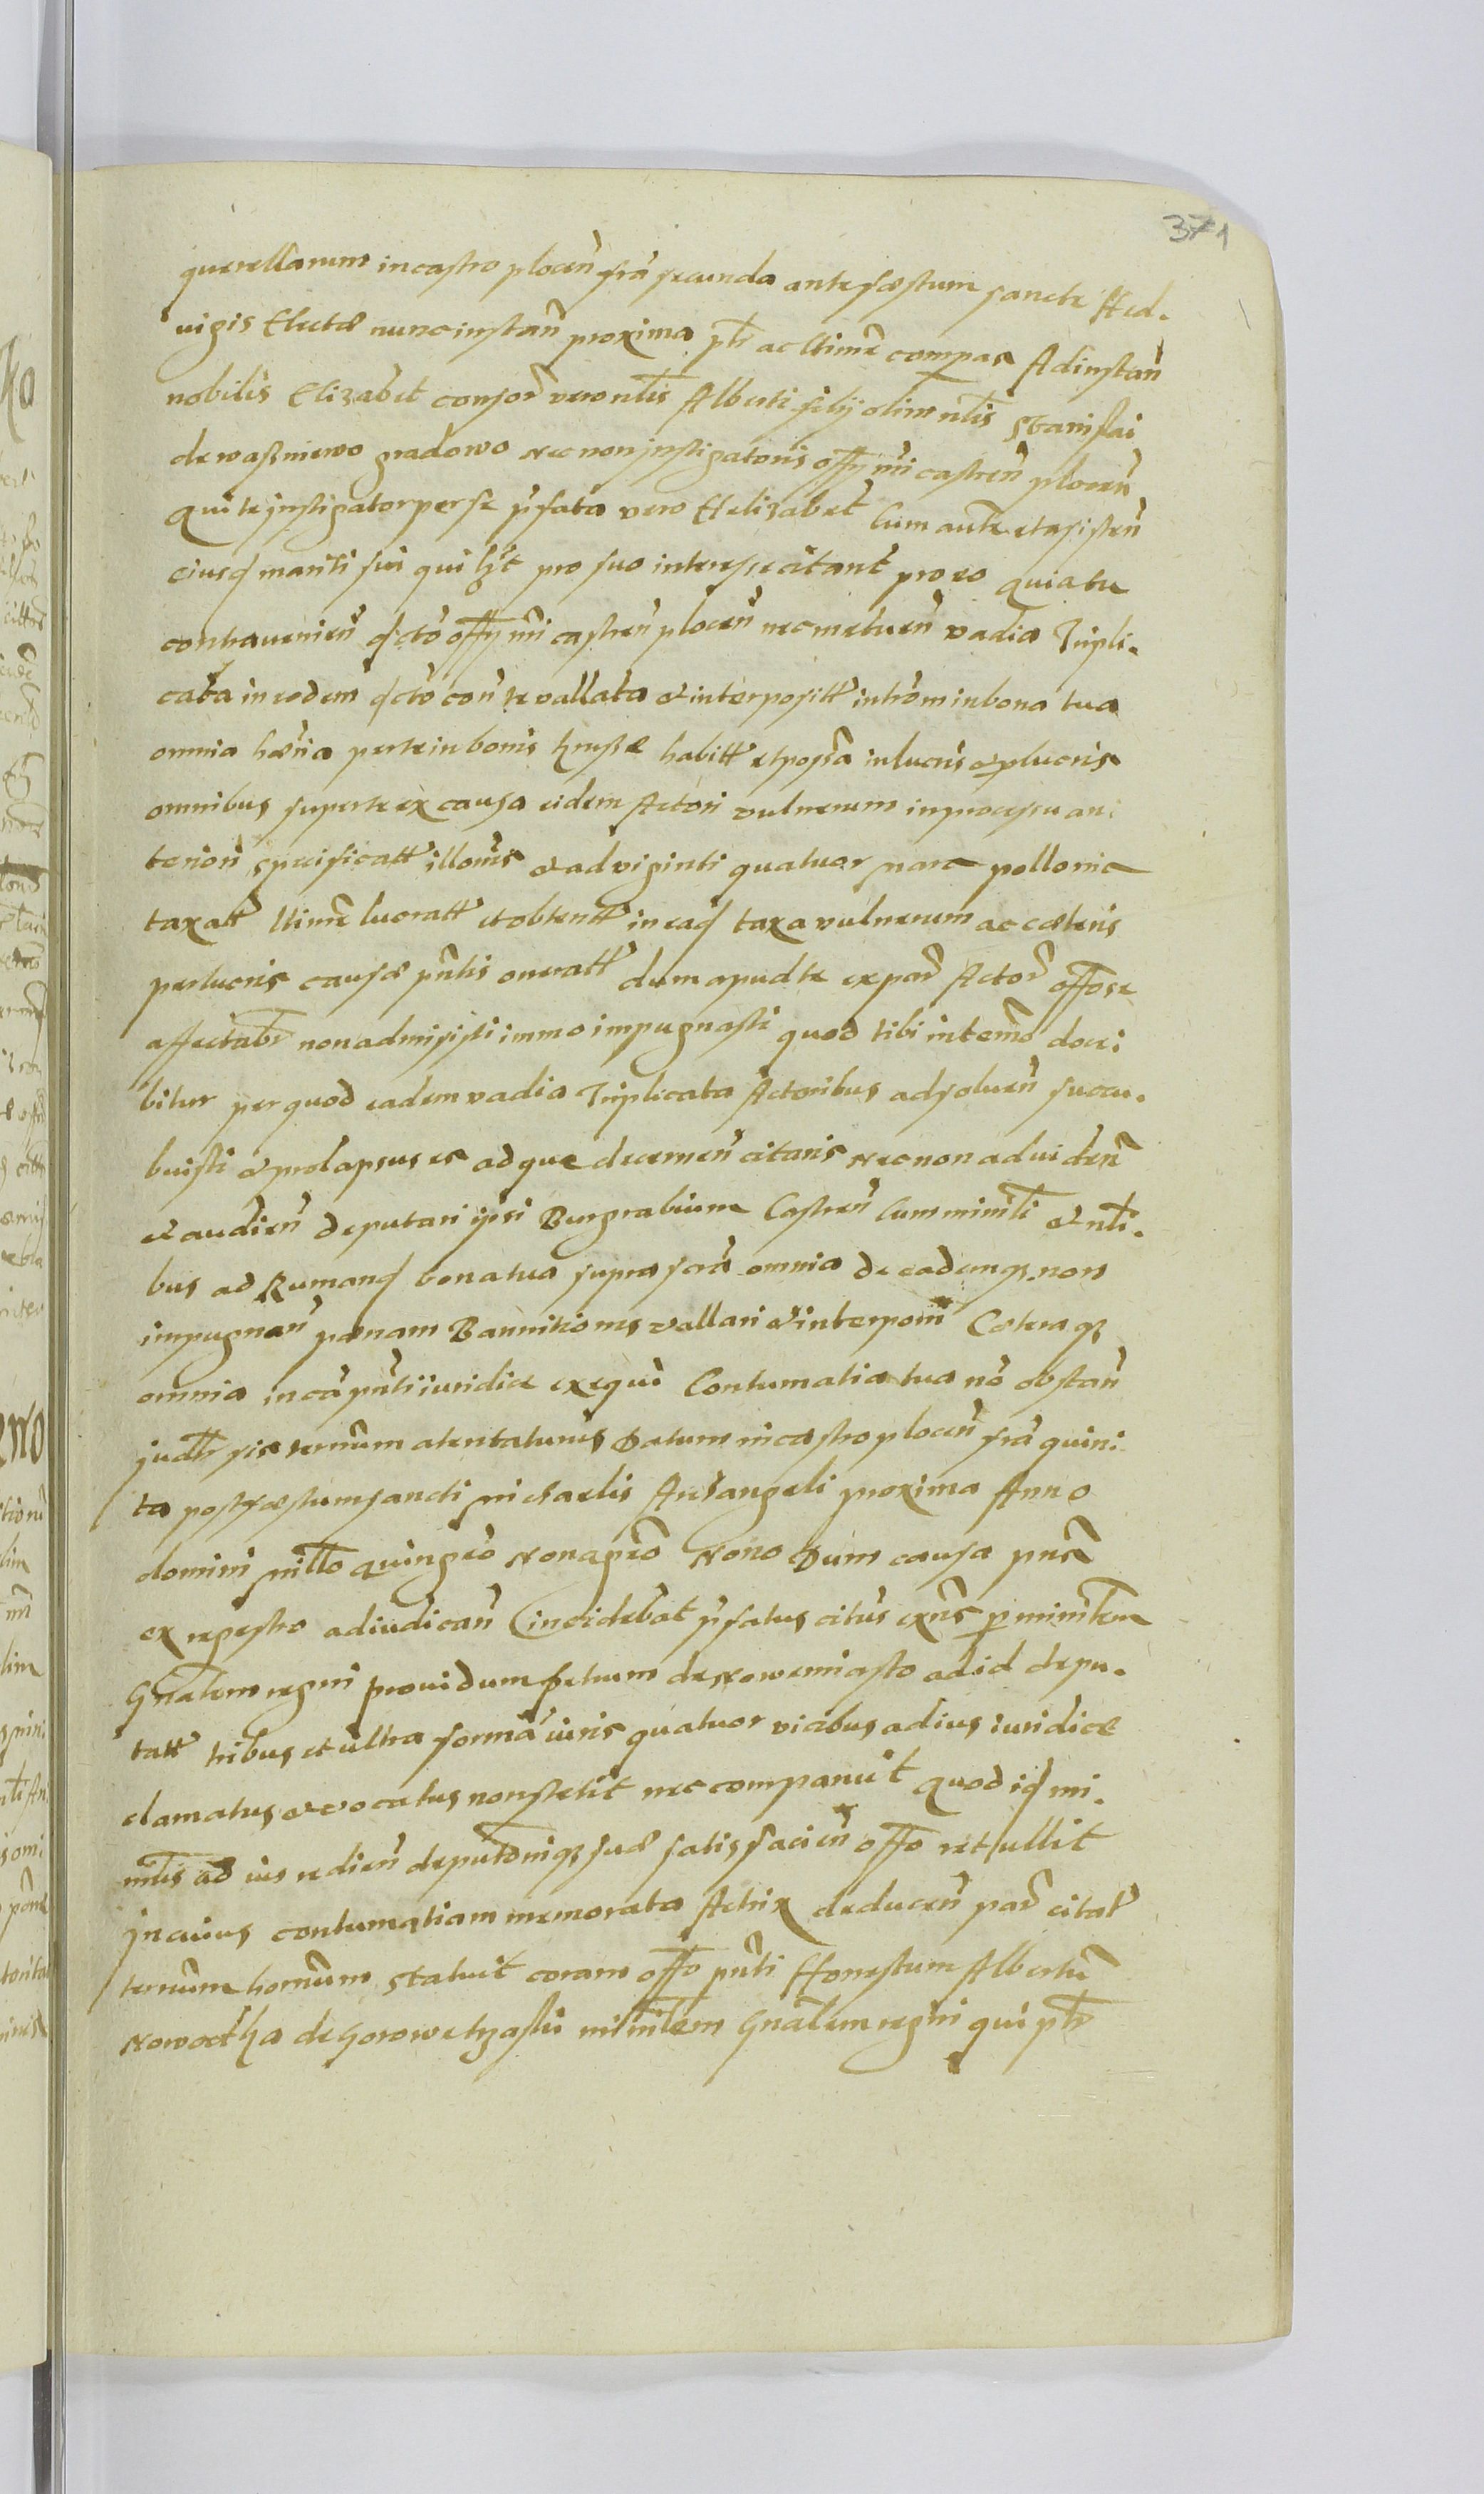 371
querellarum in castro plocen̄ fr̄a secunda ante fæstum sancte Hed.
uigis Electæ nunc instan̄ proxima pt̄r ac ltim̄e compas Ad instan̄
nobilis Elizabet consor̄ vero nl̄is Alberti filij olim nl̄is Stanislai
de waßniewo gradowo necnon instigatoris offij nr̄i castren̄ plocen̄
Qui te instigator per se p̄fata vero Helizabet Cum aūte et asisten̄
eiusq mariti sui qui h̄t pro suo interesse citant pro eo quia tu
contraueniēn dcto offij nr̄i castren̄ plocen̄ nec metuen̄ vadia Tripli.
cata in eodem dcto con̄ te vallata et interposit̄t intrōm in bona tua
omnia hær̄ia per te in bonis habit̄t et possā in lucris et plucris
omnibus super te ex causa eidem Actori vulnerum in processu an:
teriori specificatt̄ illoru̅s et ad viginti quatuor marc pollonic
taxatt̄ ltim̄e lucratt̄ et obtentt̄ in eaq taxa vulnerum ac cæteris
perlucris causæ pn̄tis oneratt̄ dum apud te ex par̄ Actor̄ offose
affectabr̄ non admisisti immo impugnasti quod tibi in term̄o doce:
bitur per quod eadem vadia Triplicata Actoribus ad soluen̄ succu.
buisti et prolapsus es ad que decernen̄ citaris necnon ad viden̄
et audien̄ deputari ipsi Burgrabium Castren̄ Cum minr̄li et nl̄i.
bus ad Rumand bona tua supra scrā omnia de eademq non
impugnan̄ pœnam Bannitionis vallari et interponi Cæteraq
omnia in cā pn̄ti iuridice exequi Contumatia tua nō obstan̄
judlr sis termm atentaturus Datum in castro plocen̄ fr̄a quin:
ta post fæstum sancti Michaelis Archangeli proxima Anno
domini Mill̄o quingēo Nonagēo Nono Dum causa pn̄s
ex regestro ad iudican̄ incidebat p̄fatus citus exn̄s p minr̄lem
Gn̄alem regni prouidum petrum de Nowemiasto ad id depu.
tatt̄ tribus et ultra formā iuris quatuor vicibus ad ius iuridice
clamatus et vocatus non stetit nec comparuit quod iq mi.
nrl̄is ad ius redien̄ deputōniq suæ satisfacien̄ offo retullit
In cuius contumatiam memorata Actrix deducen̄ par̄ citatr̄
termm hornum, statuit coram offo pn̄ti Honestum Albertū
Nowotka de Gorowe minr̄lem Gn̄alem regni qui pt̄r